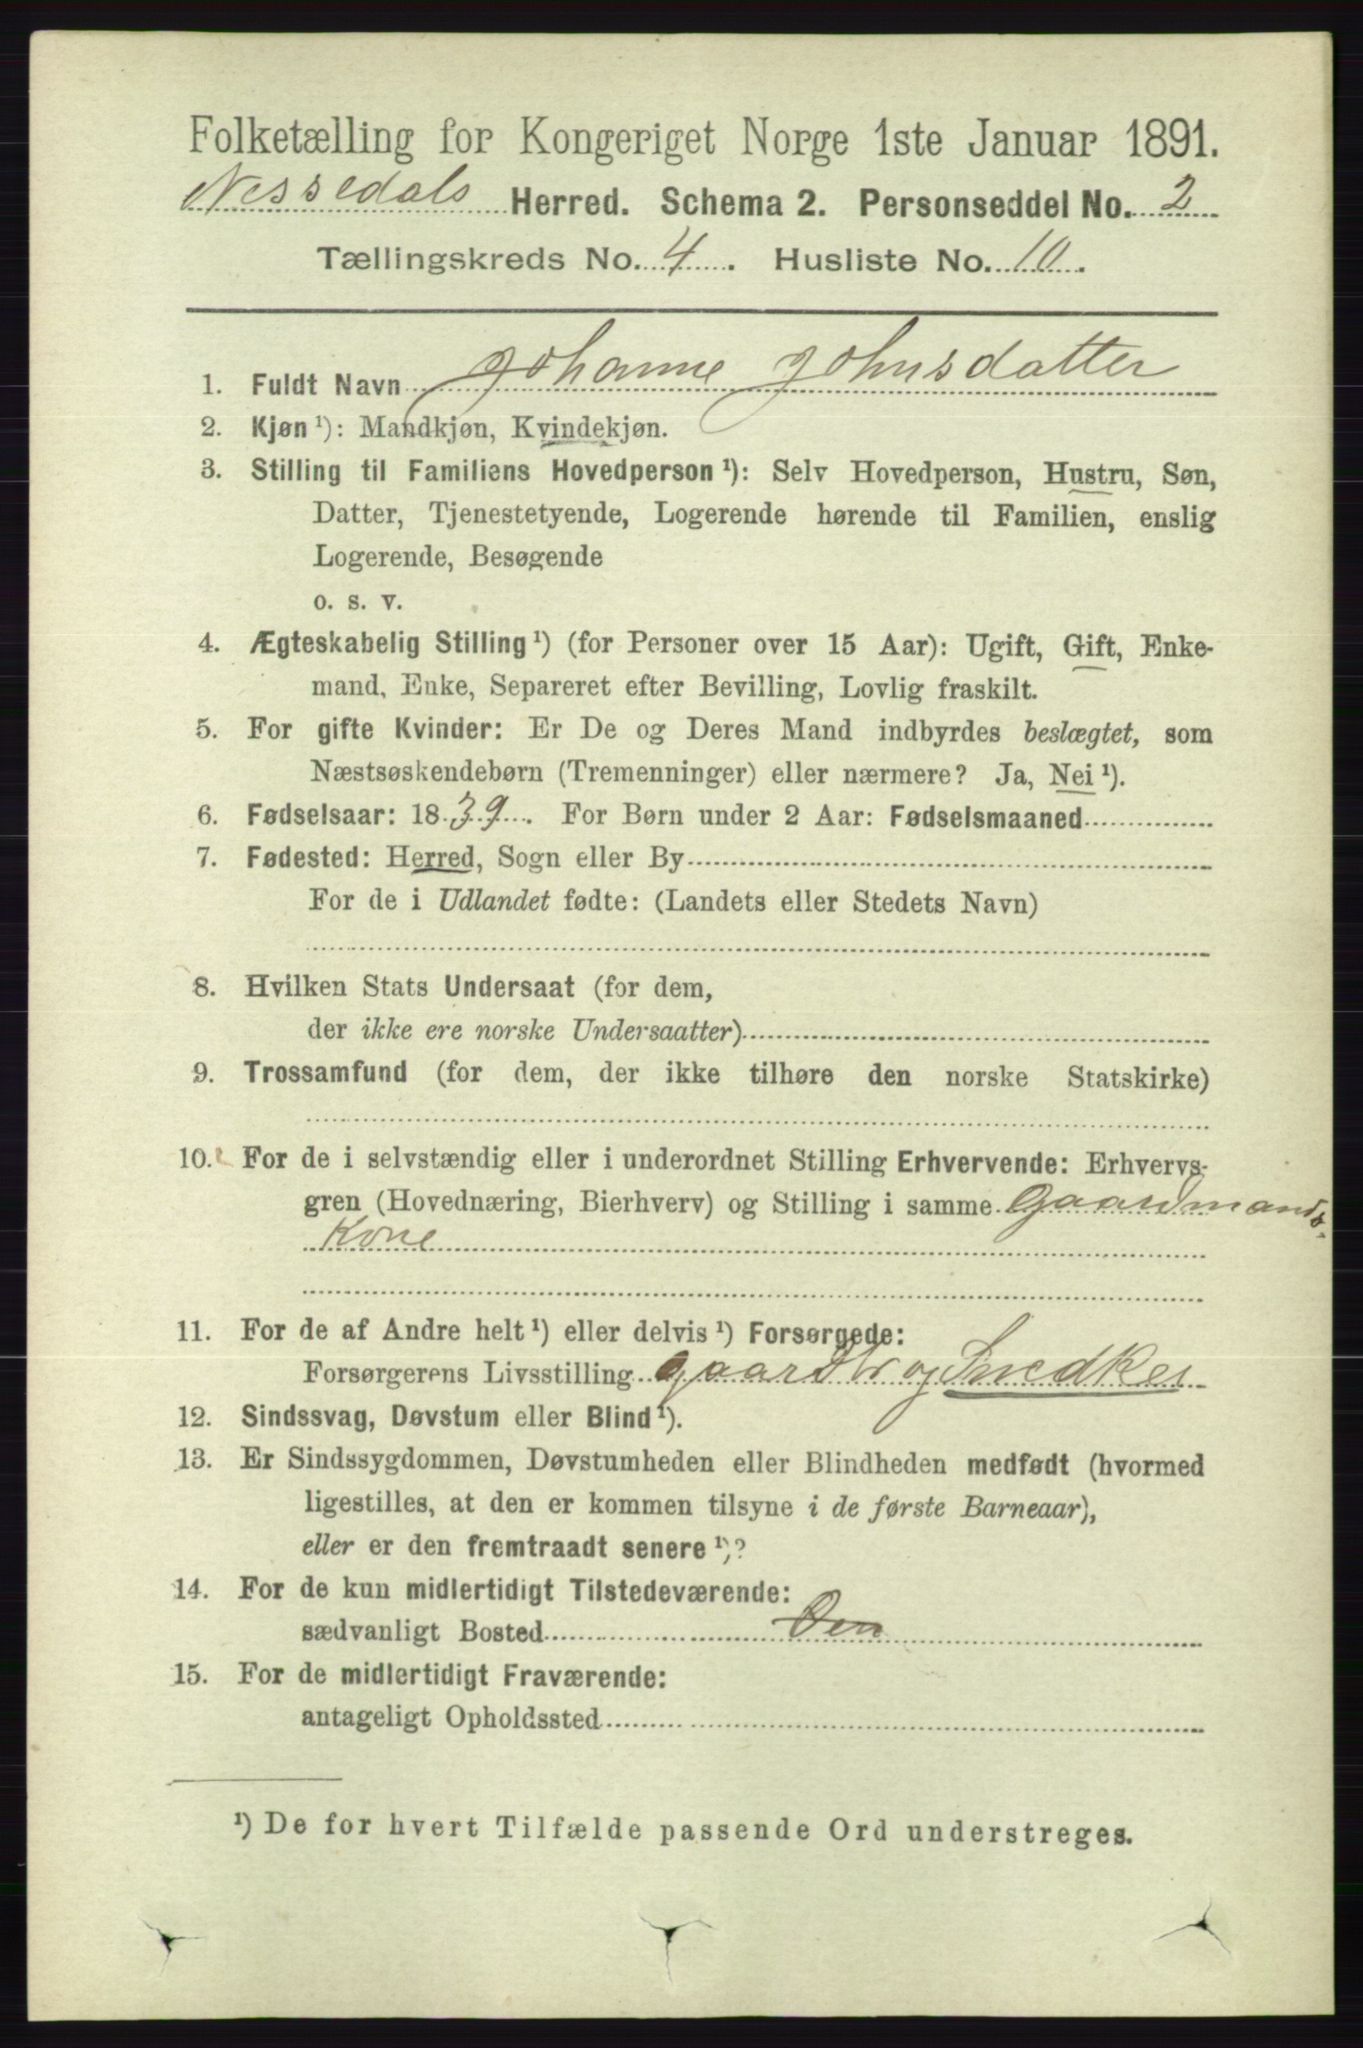 Folketælling for Kongeriget Norge 1ste Januar 1891.
Nissedals Herred. Schema 2. Personseddel No. 2
Tællingskreds No. 4. Husliste No. 10.
1. Fuldt Navn Johanne Johnsdatter
2. Kjøn ¹): Mandkjøn, Kvindekjøn.
3. Stilling til Familiens Hovedperson ¹): Selv Hovedperson, Hustru, Søn,
Datter, Tjenestetyende, Logerende hørende til Familien, enslig
Logerende, Besøgende
o. s. v.
4. Ægteskabelig Stilling ¹) (for Personer over 15 Aar): Ugift, Gift, Enke-
mand, Enke, Separeret efter Bevilling, Lovlig fraskilt.
5. For gifte Kvinder: Er De og Deres Mand indbyrdes beslægtet, som
Næstsøskendebørn (Tremenninger) eller nærmere? Ja, Nei ¹).
6. Fødselsaar: 1839. For Børn under 2 Aar: Fødselsmaaned
7. Fødested: Herred, Sogn eller By
For de i Udlandet fødte: (Landets eller Stedets Navn)
8. Hvilken Stats Undersaat (for dem,
der ikke ere norske Undersaatter)
9. Trossamfund (for dem, der ikke tilhøre den norske Statskirke)
10. For de i selvstændig eller i underordnet Stilling Erhvervende: Erhvervs-
gren (Hovednæring, Bierhverv) og Stilling i samme Gaardmands-
Kone
11. For de af Andre helt ¹) eller delvis ¹) Forsørgede:
Forsørgerens Livsstilling gaardbr og Snedker
12. Sindssvag, Døvstum eller Blind ¹).
13. Er Sindssygdommen, Døvstumheden eller Blindheden medfødt (hvormed
ligestilles, at den er kommen tilsyne i de første Barneaar),
eller er den fremtraadt senere ¹)?
14. For de kun midlertidigt Tilstedeværende:
sædvanligt Bosted
15. For de midlertidigt Fraværende:
antageligt Opholdssted
¹) De for hvert Tilfælde passende Ord understreges.